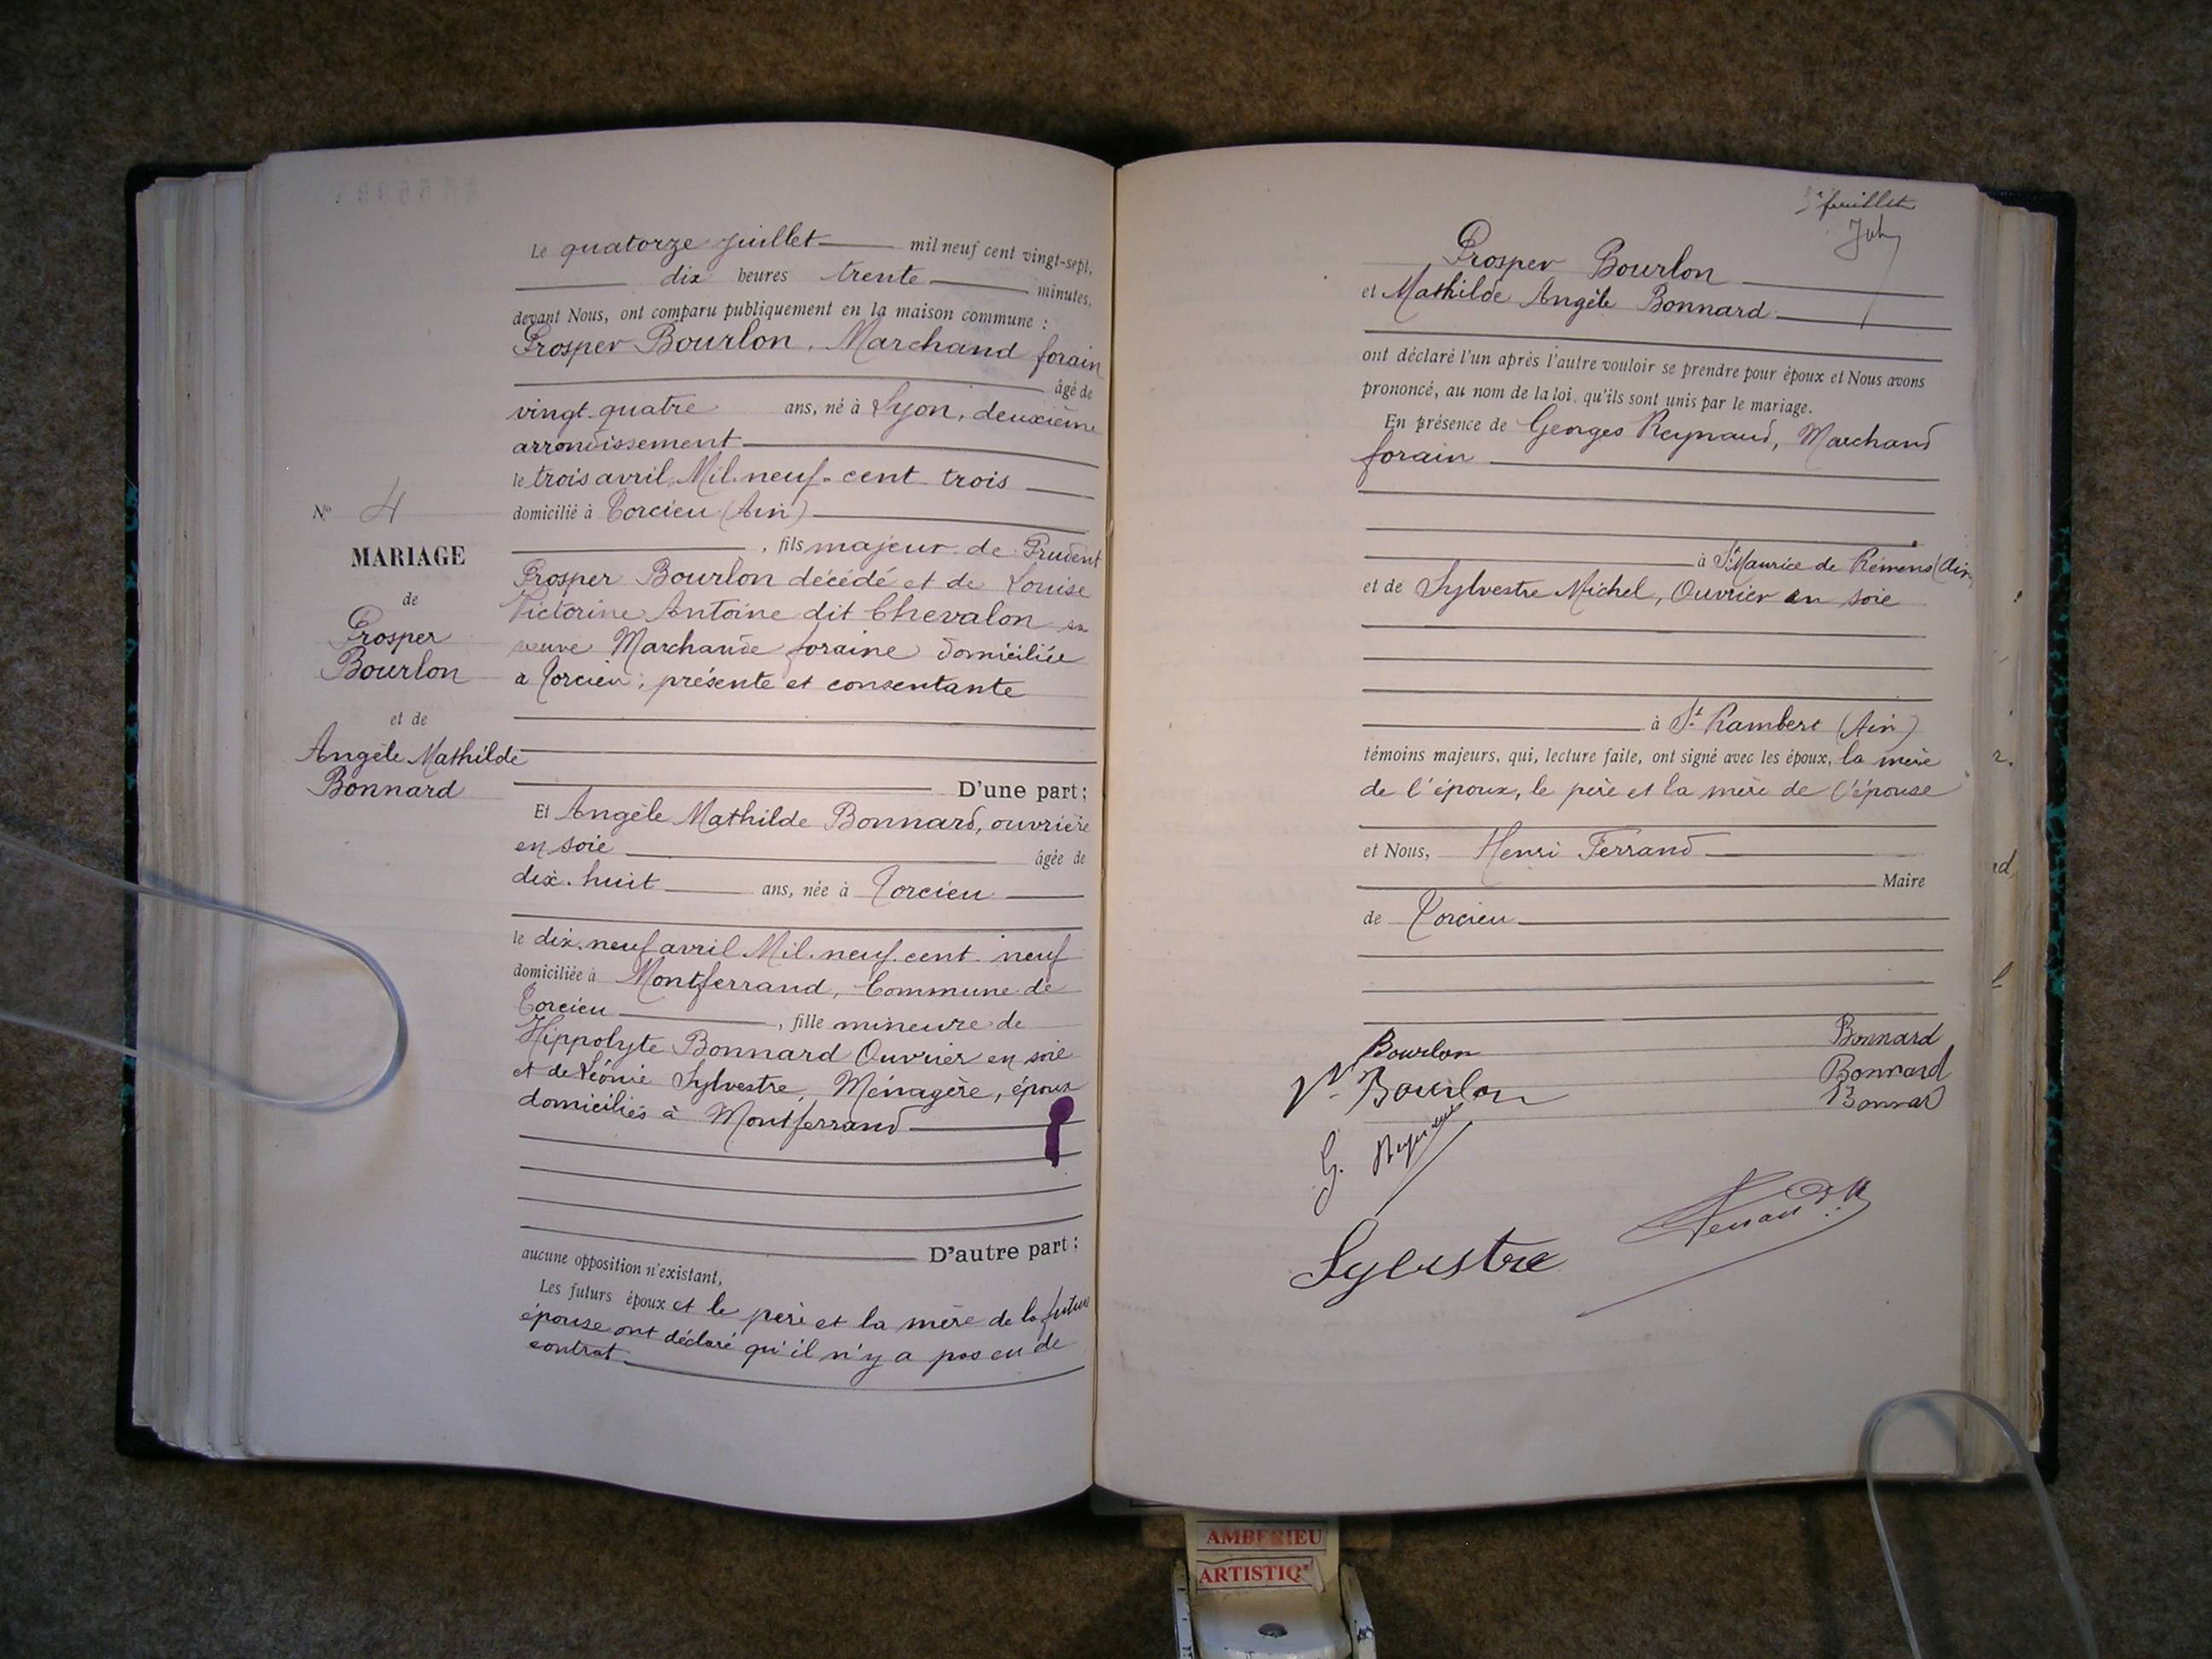 Le quatorze Juillet mil neuf cent vingt-sept,
dix heures trente minutes,
devant Nous, ont comparu publiquement en la maison commune :
Prosper Bourlon, Marchand forain
âgé de
vingt-quatre ans, né à Lyon, deuxième
arrondissement
le trois avril Mil-neuf-cent-trois
domicilié à Torcieu (Ain)
, fils majeur de Prudent
Prosper Bourlon décédé et de Louise
Victorine Antoine dit Chevalon sa
veuve Marchande foraine domiciliée
à Torcieu; présente et consentante
N° 4
MARIAGE
de
Prosper
Bourlon
et de
Angèle Mathilde
Bonnard
D'une part :
Et Angèle Mathilde Bonnard, ouvrière
en soie âgée de
dix-huit ans, née à Torcieu
le dix-neuf avril Mil-neuf-cent-neuf
domiciliée à Montferrand, Commune de
Torcieu , fille mineure de
Hippolyte Bonnard Ouvrier en soie
et de Léonie Sylvestre, Ménagère, époux
domiciliés à Montferrand
D'autre part :
aucune opposition n'existant,
Les futurs époux et le père et la mère de la future
épouse ont déclaré qu'il n'y a pas eu de
contrat
feuillet
Prosper Bourlon
et Mathilde Angèle Bonnard
ont déclaré l'un après l'autre vouloir se prendre pour époux et Nous avons
prononcé, au nom de la loi, qu'ils sont unis par le mariage.
En présence de Georges Reynaud, Marchand
forain
à St Maurice de Rémens (Ain)
et de Sylvestre Michel, Ouvrier en soie
à St Rambert (Ain)
témoins majeurs, qui, lecture faite, ont signé avec les époux, la mère
de l'époux, le père et la mère de l'épouse
et Nous, Henri Ferrand
Maire
de Torcieu
Bourlon Bonnard
Vve Bourlon Bonnard
Bonnard
G. Reynaud
Sylvestre
Ferrand
AMBERIEU
ARTISTIQ